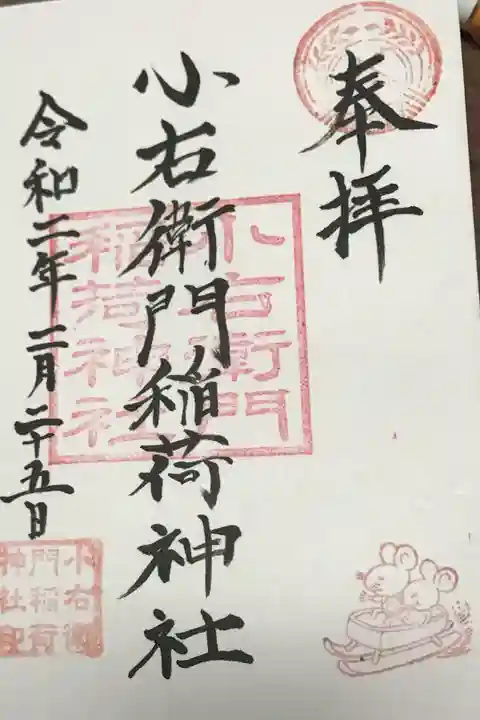 奉拝
小右衛門稲荷神社
小右衛門
稲荷神社
令和二年 二月二十五日
小右衛
門稲荷
神社印